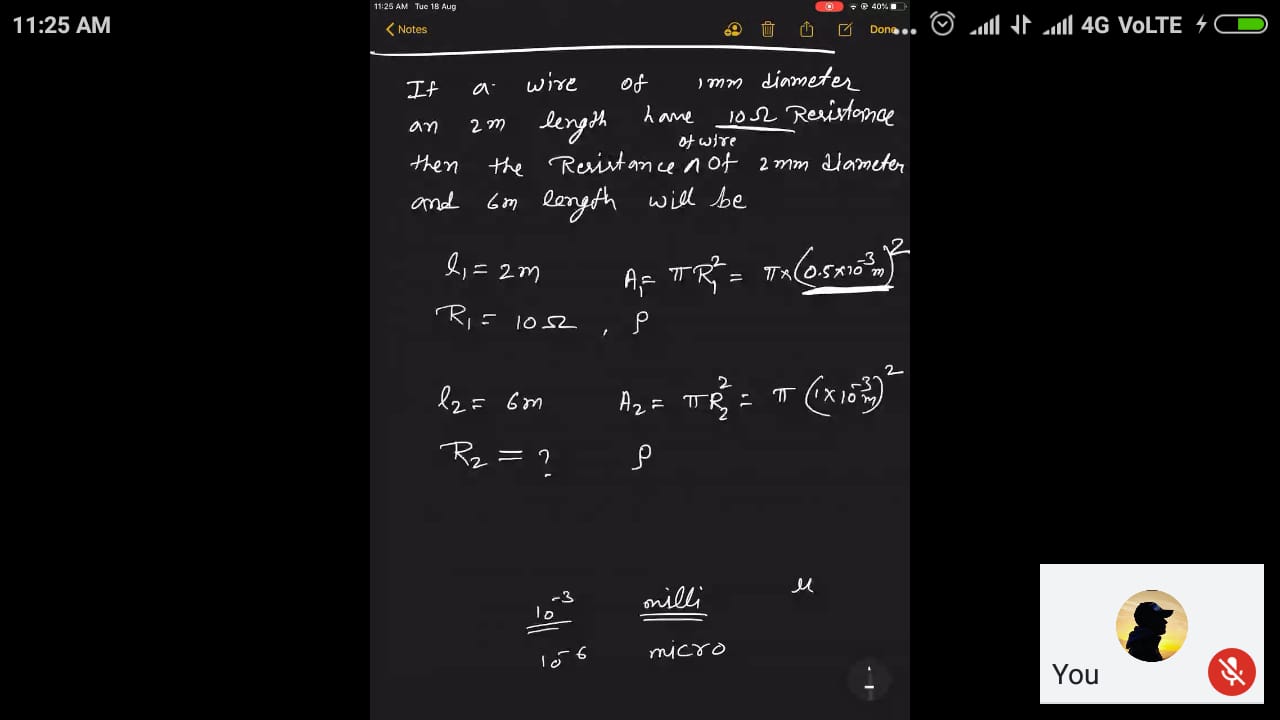 11:25 AM
4G VoLTE
11:25 AM Tue 18 Aug
40%
Notes
Done
If a wire of 1mm diameter
an 2m length have 10Ω Resistance
of wire
then the Resistance ∧ Of 2mm diameter
and 6m length will be
l₁ = 2m A₁ = πR₁² = π×(0.5×10⁻³m)²
R₁ = 10Ω , ρ
l₂ = 6m A₂ = πR₂² = π (1×10⁻³m)²
R₂ = ? ρ
10⁻³ milli μ
10⁻⁶ micro
You